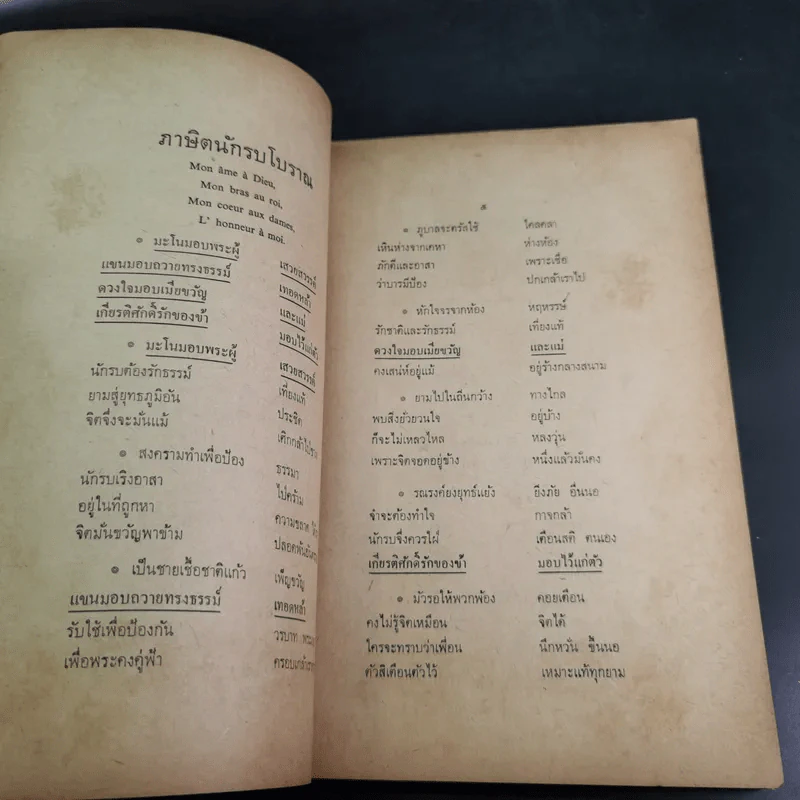 ภาษิตนักรบโบราณ
Mon âme à Dieu,
Mon bras au roi,
Mon coeur aux dames,
L' honneur à moi.
๏ มะโนมอบพระผู้ เสวยสวรรค์
แขนมอบถวายทรงธรรม์ เทอดหล้า
ดวงใจมอบเมียขวัญ และแม่
เกียรติศักดิ์รักของข้า มอบไว้แก่ตัว
๏ มะโนมอบพระผู้ เสวยสวรรค์
นักรบต้องรักธรรม์ เที่ยงแท้
ยามสู่ยุทธภูมิอัน ประชิด
จิตจึ่งจะมั่นแม้
๏ สงครามทำเพื่อป้อง ธรรมา
นักรบเริงอาสา ไปคร้าม
อยู่ในที่ถูกหา ความขลาด
จิตมั่นขวัญพาข้าม
๏ เป็นชายเชื้อชาติแก้ว เพ็ญขวัญ
แขนมอบถวายทรงธรรม์ เทอดหล้า
รับใช้เพื่อป้องกัน วรบาท
เพื่อพระคงคู่ฟ้า
๏ ภูบาลจะตรัสใช้ ไคลคลา
เหินห่างจากเคหา ห่างห้อง
ภักดีและอาสา เพราะเชื่อ
ว่าบารมีป้อง ปกเกล้าเราไป
๏ หักใจจรจากห้อง หฤหรรษ์
รักชาติและรักธรรม์ เที่ยงแท้
ดวงใจมอบเมียขวัญ และแม่
คงเสน่ห์อยู่แม้ อยู่ร้างกลางสนาม
๏ ยามไปในถิ่นกว้าง ทางไกล
พบสิ่งยั่วยวนใจ อยู่บ้าง
ก็จะไม่เหลวไหล หลงวุ่น
เพราะจิตจอดอยู่ข้าง หนึ่งแล้วมั่นคง
๏ รณรงค์ยงยุทธ์แย้ง ยิงภัย อื่นนอ
จำจะต้องทำใจ กาจกล้า
นักรบจึ่งควรไผ่ เตือนสติ ตนเอง
เกียรติศักดิ์รักของข้า มอบไว้แก่ตัว
๏ มัวรอให้พวกพ้อง คอยเตือน
คงไม่รู้จิตเหมือน จิตได้
ใครจะทราบว่าเพื่อน นึกหวั่น ขึ้นนอ
ตัวสิเตือนตัวไว้ เหมาะแท้ทุกยาม